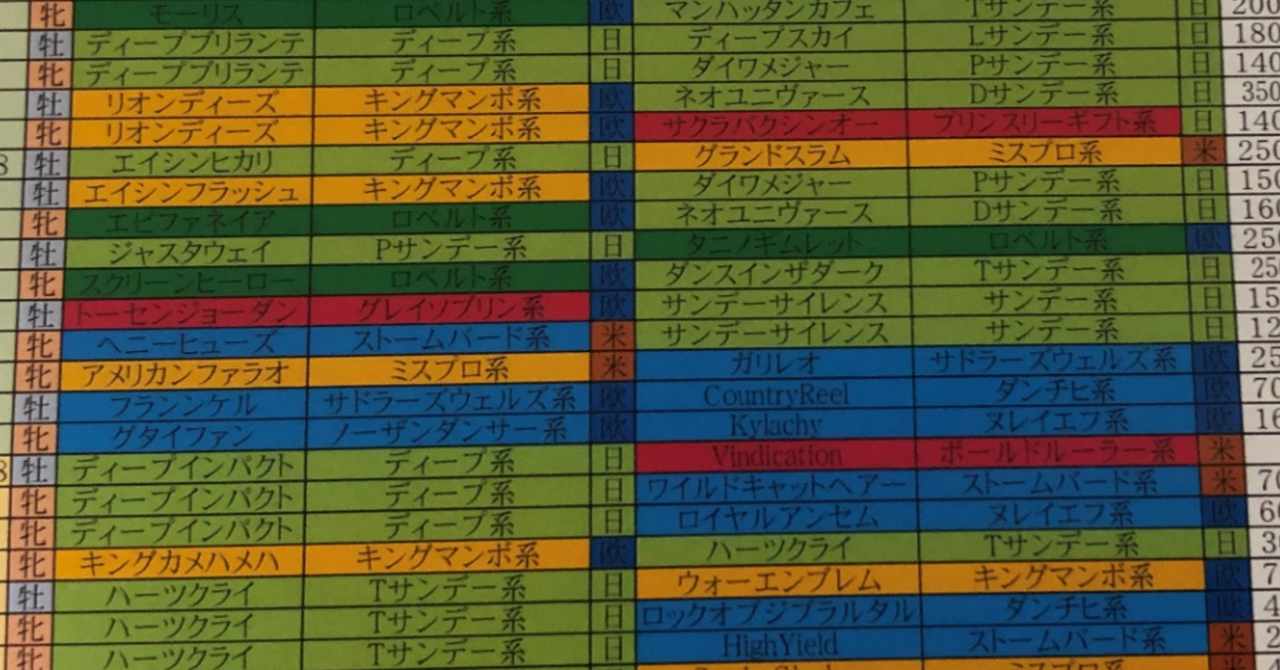 牝 モーリス ロベルト系 欧 マンハッタンカフェ Tサンデー系 日 200
牡 ディープブリランテ ディープ系 日 ディープスカイ Lサンデー系 日 180
牝 ディープブリランテ ディープ系 日 ダイワメジャー Pサンデー系 日 140
牡 リオンディーズ キングマンボ系 欧 ネオユニヴァース Dサンデー系 日 350
牝 リオンディーズ キングマンボ系 欧 サクラバクシンオー プリンスリーギフト系 日 140
8 牡 エイシンヒカリ ディープ系 日 グランドスラム ミスプロ系 米 250
牡 エイシンフラッシュ キングマンボ系 欧 ダイワメジャー Pサンデー系 日 150
牝 エピファネイア ロベルト系 欧 ネオユニヴァース Dサンデー系 日 160
牡 ジャスタウェイ Pサンデー系 日 タニノギムレット ロベルト系 欧 250
牝 スクリーンヒーロー ロベルト系 欧 ダンスインザダーク Tサンデー系 日 25
牡 トーセンジョーダン グレイソブリン系 欧 サンデーサイレンス サンデー系 日 15
牝 ヘニーヒューズ ストームバード系 米 サンデーサイレンス サンデー系 日 12
牝 アメリカンファラオ ミスプロ系 米 ガリレオ サドラーズウェルズ系 欧 25
牡 フランンケル サドラーズウェルズ系 欧 CountryReel ダンチヒ系 欧 70
牝 グタイファン ノーザンダンサー系 欧 Kylachy ヌレイエフ系 欧 16
8 牡 ディープインパクト ディープ系 日 Vindication ボールドルーラー系 米
牝 ディープインパクト ディープ系 日 ワイルドキャットヘアー ストームバード系 米 70
牝 ディープインパクト ディープ系 日 ロイヤルアンセム ヌレイエフ系 欧 6
牝 キングカメハメハ キングマンボ系 欧 ハーツクライ Tサンデー系 日 3
牡 ハーツクライ Tサンデー系 日 ウォーエンブレム キングマンボ系 欧 7
牝 ハーツクライ Tサンデー系 日 ロックオブジブラルタル ダンチヒ系 欧 4
牝 ハーツクライ Tサンデー系 日 HighYield ストームバード系 米 2
ミスプロ系